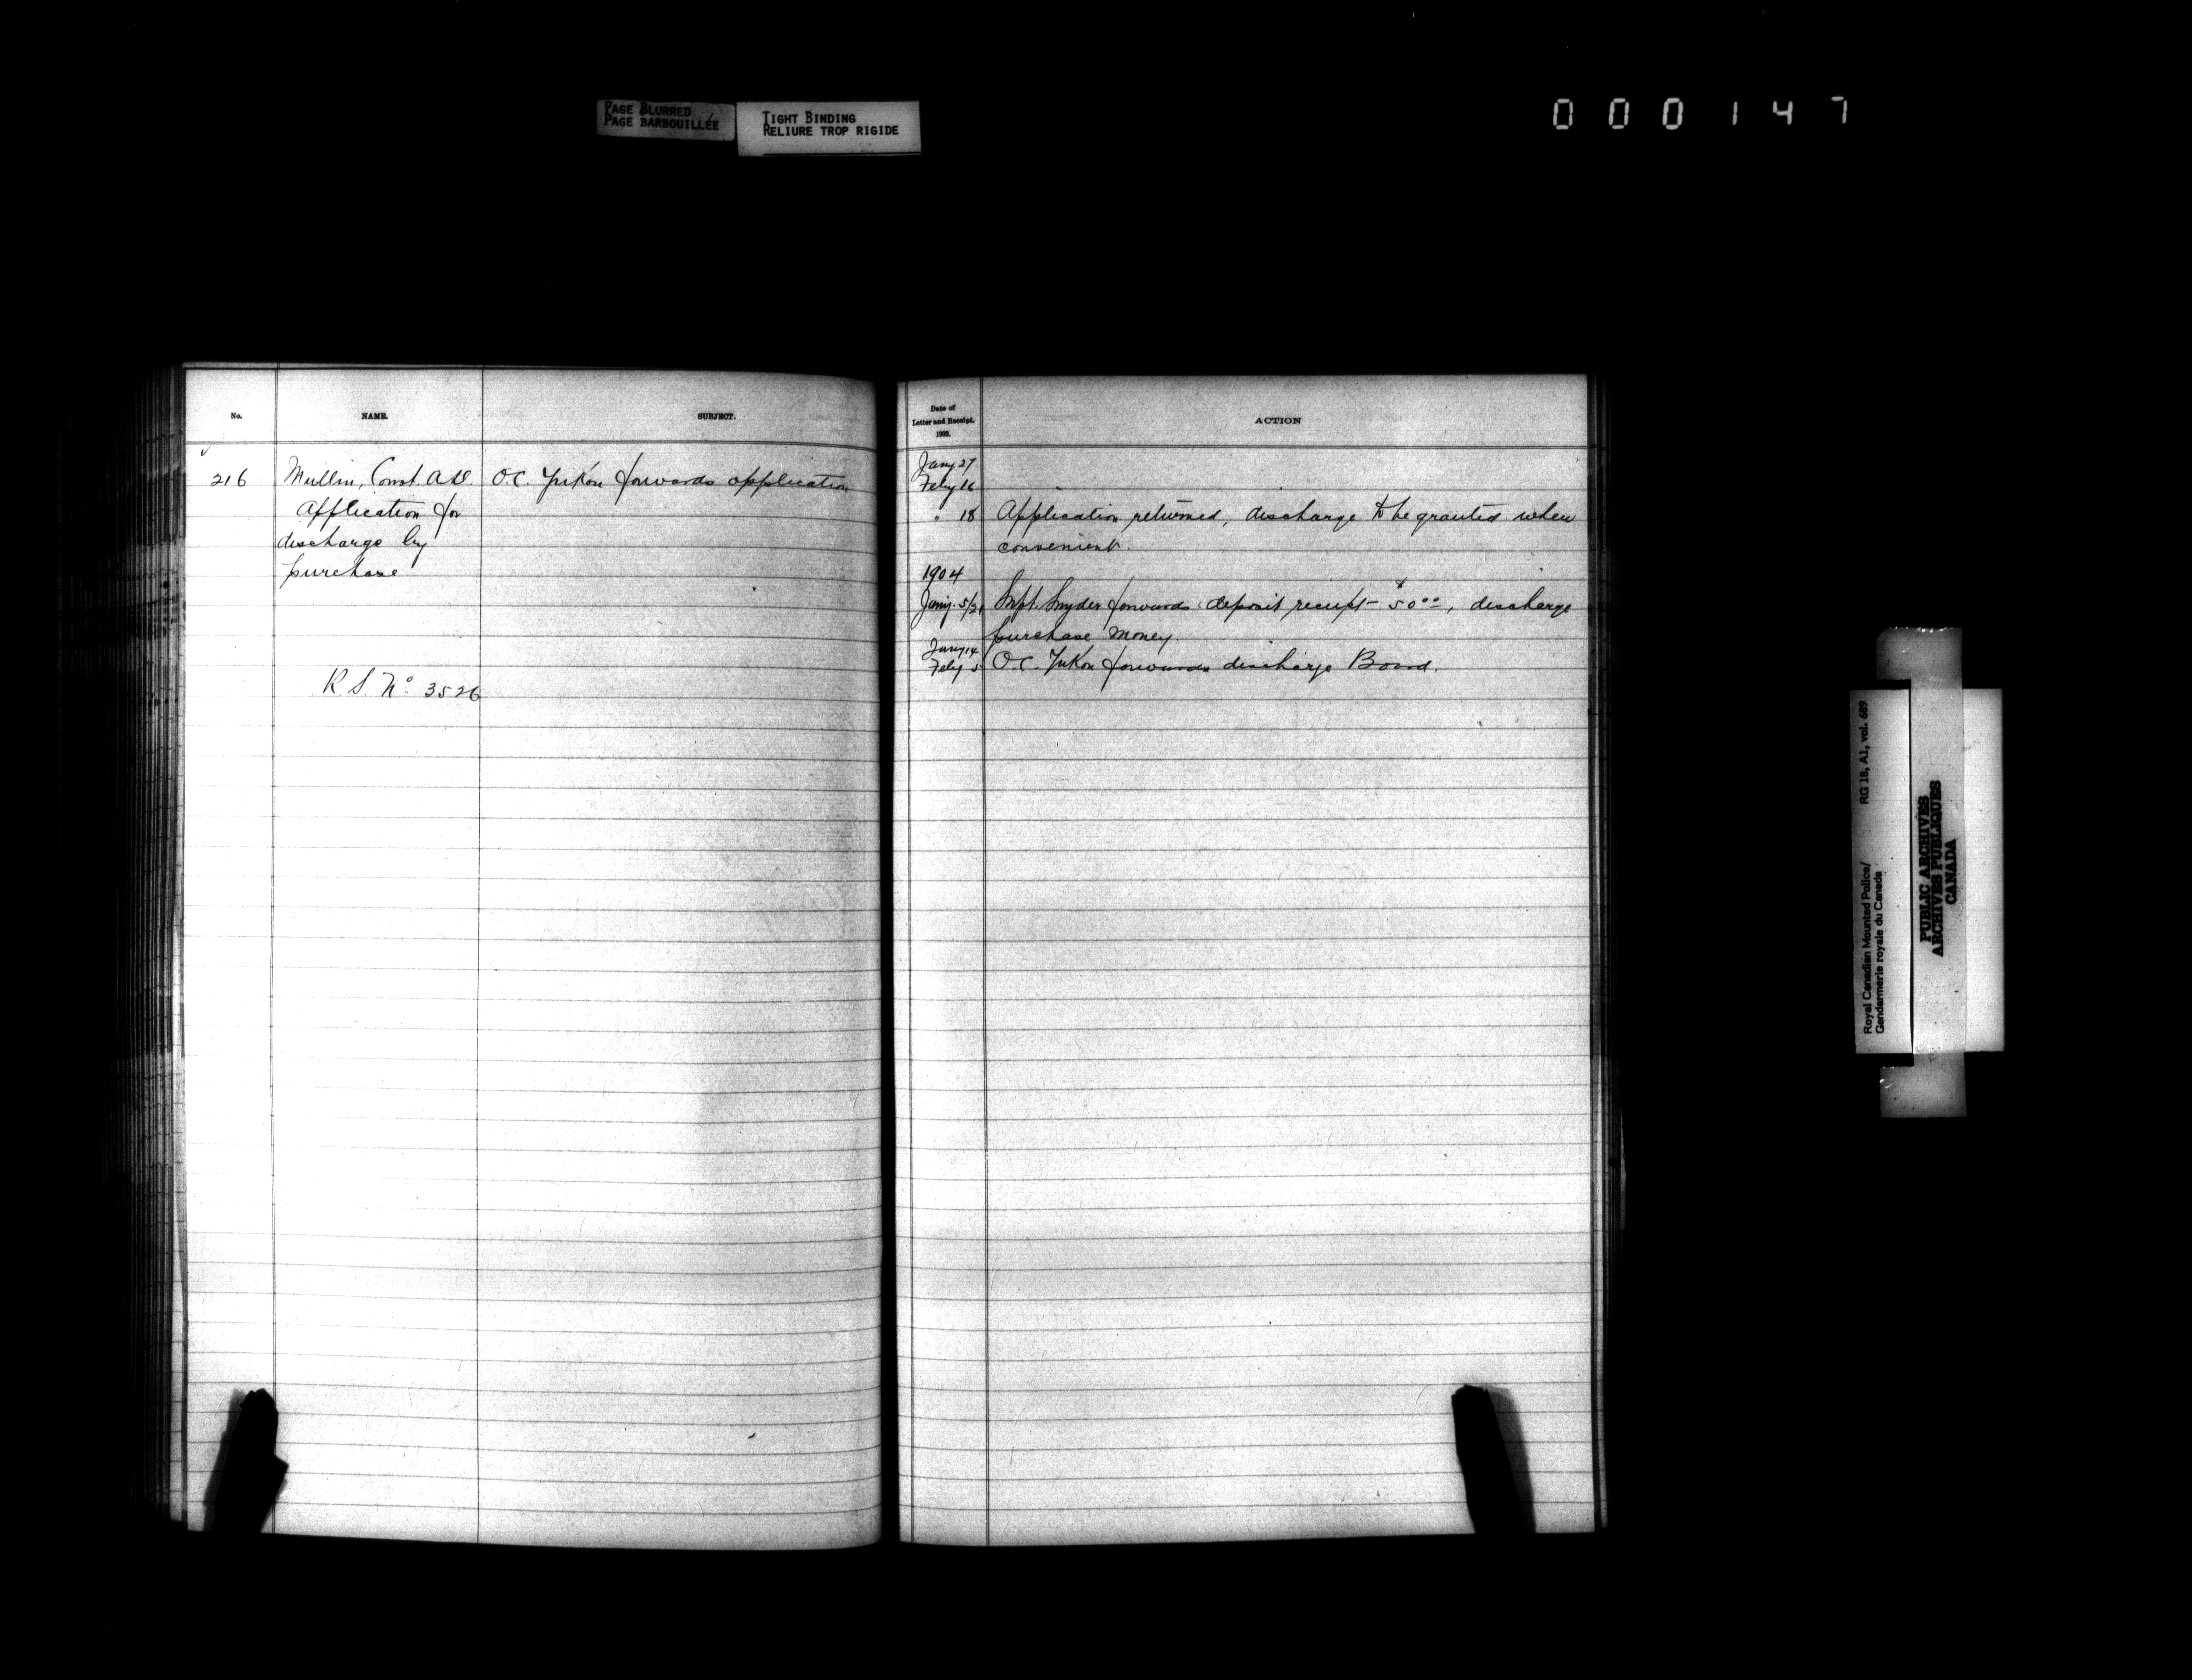 PAGE BLURRED
PAGE BARBOUILLÉE
TIGHT BINDING
RELIURE TROP RIGIDE
000147
No.
NAME.
SUBJECT.
216
Mullin, Const. A.
Application for
discharge by
purchase
O.C. Yukon forwards application
R.S. No. 3526
Date of
Letter and Receipt.
1903.
ACTION
Jany 27
Feby 16
" 18 Application returned, discharge to be granted when
convenient.
1904
Jany. 5/21 Supt. Snyder forwards deposit receipt - $50.00, discharge
purchase money.
Jany 14
Feby 5 O.C. Yukon forwards discharge Board.
Royal Canadian Mounted Police/
Gendarmerie royale du Canada
RG 18, A1, vol. 689
PUBLIC ARCHIVES
ARCHIVES PUBLIQUES
CANADA